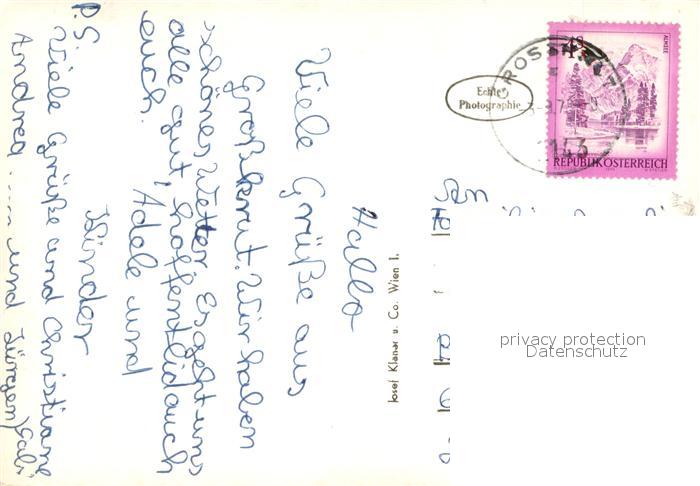 Hallo
Viele Grüße aus
Großkrut. Wir haben
schönes Wetter. Es geht uns
alle gut, hoffentlich auch
euch.
Adele und
Kinder
P.S.
Viele Grüße und Christiane
Andrea und Jürgen, Gabi
Echte
Photographie
Josef Klaner u. Co. Wien I.
4S
ALMSEE
REPUBLIK ÖSTERREICH
2143
privacy protection
Datenschutz